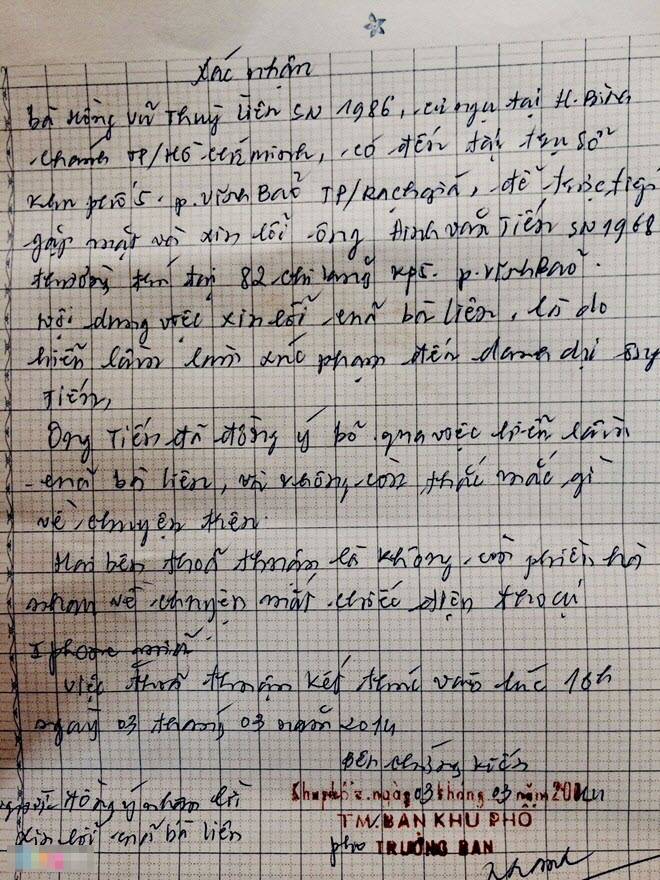 Xác nhận
bà Hồng Vũ Thuỳ Liên SN 1986, cư ngụ tại H. Bình
Chánh TP/Hồ Chí Minh, có đến tại trụ sở
khu phố 5. p. Vĩnh Bảo TP/Rạch giá, để trực tiếp
gặp mặt và xin lỗi ông Đinh Văn Tiến SN 1968
thường trú tại 82 Chi Lăng KP5. p. Vĩnh Bảo.
Nội dung việc xin lỗi của bà Liên, là do
hiểu lầm xúc phạm đến danh dự ông
Tiến,
Ông Tiến đã đồng ý bỏ qua việc hiểu lầm
của bà Liên, và không còn thắc mắc gì
về chuyện trên.
Hai bên thoả thuận là không còn phiền hà
nhau về chuyện mất chiếc điện thoại
Iphone
Việc thoả thuận kết thúc vào lúc 16h
ngày 03 tháng 03 năm 2014
Bên chứng kiến
Khu phố 5. ngày 03 tháng 03 năm 2014
TM. BAN KHU PHỐ
phó TRƯỞNG BAN
đồng ý nhận lời
xin lỗi của bà Liên